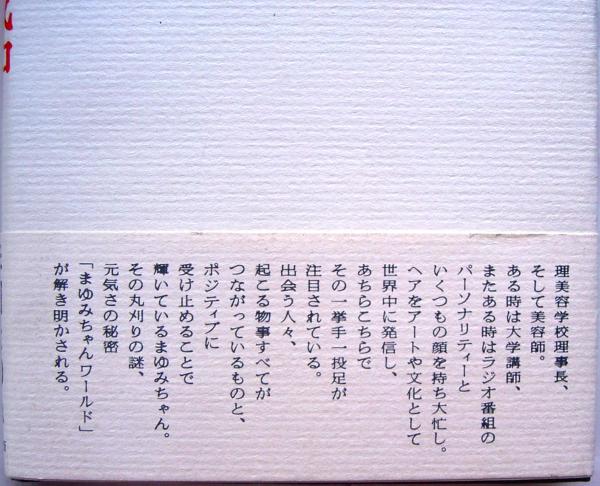 理美容学校理事長、
そして美容師。
ある時は大学講師、
またある時はラジオ番組の
パーソナリティーと
いくつもの顔を持ち大忙し。
ヘアをアートや文化として
世界中に発信し、
あちらこちらで
その一挙手一投足が
注目されている。
出会う人々、
起こる物事すべてが
つながっているものと、
ポジティブに
受け止めることで
輝いているまゆみちゃん。
その丸刈りの謎、
元気さの秘密
「まゆみちゃんワールド」
が解き明かされる。